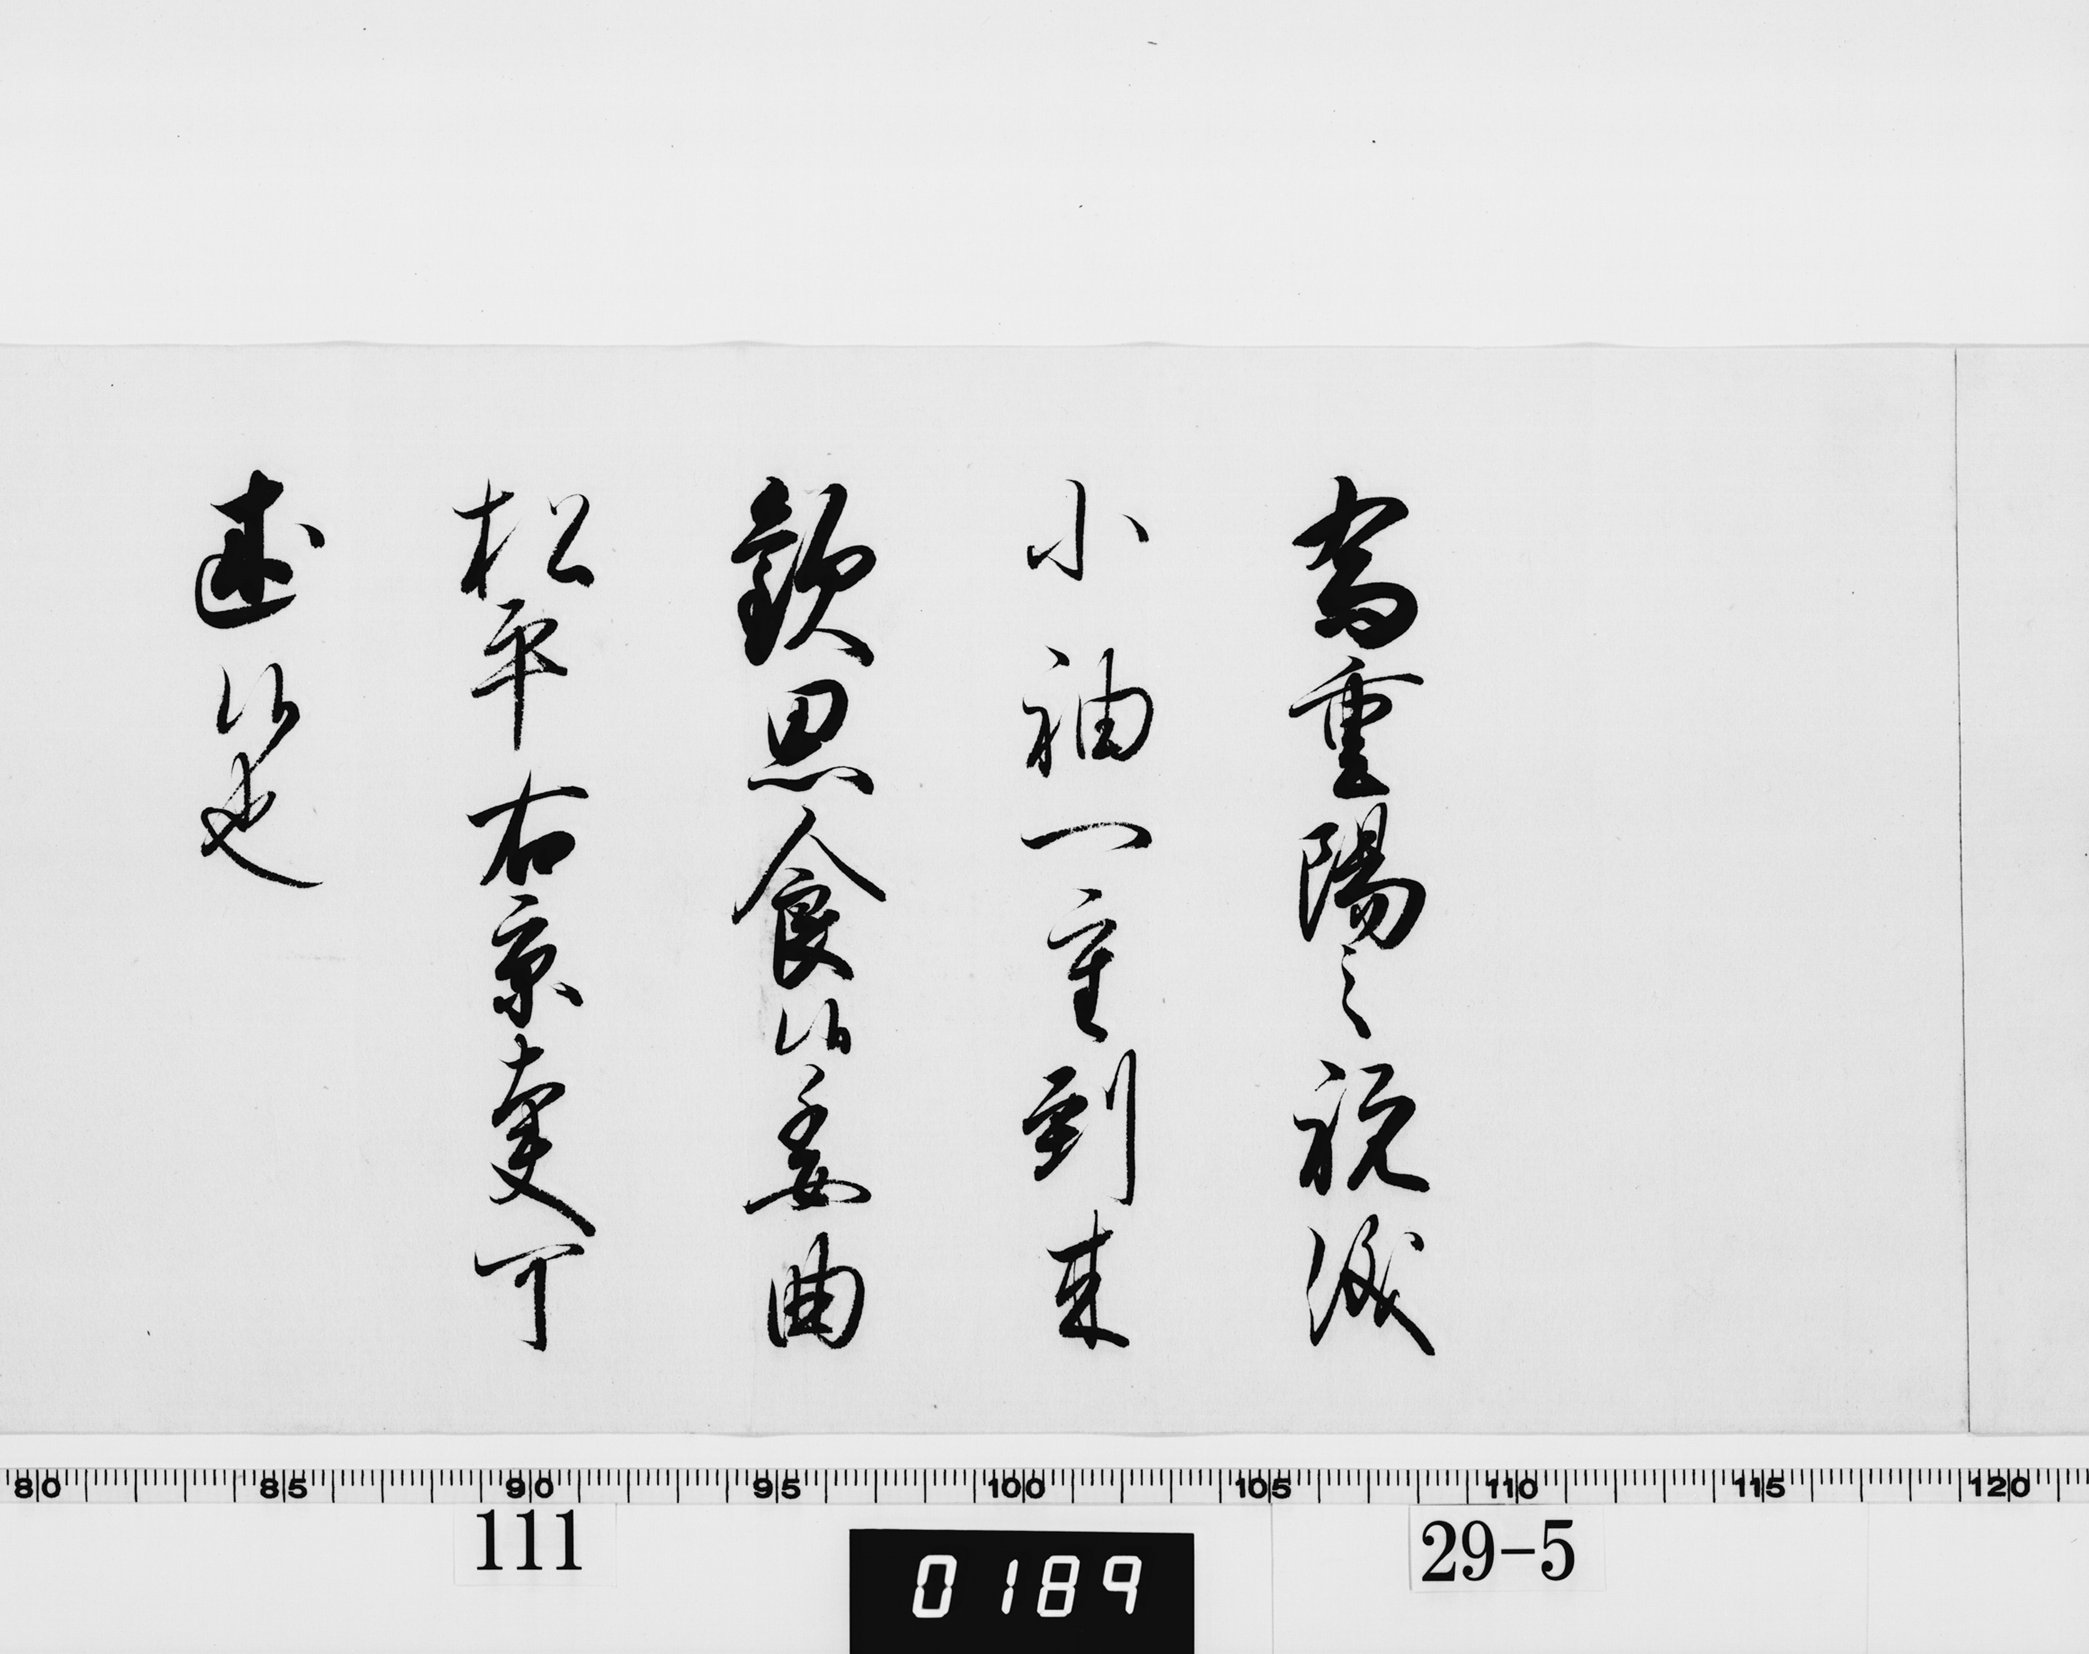 為重陽之祝儀
小袖一重到来
歓思食候委曲
松平右京大夫可
述候也
80 85 90 95 100 105 110 115 120
111
0189
29-5